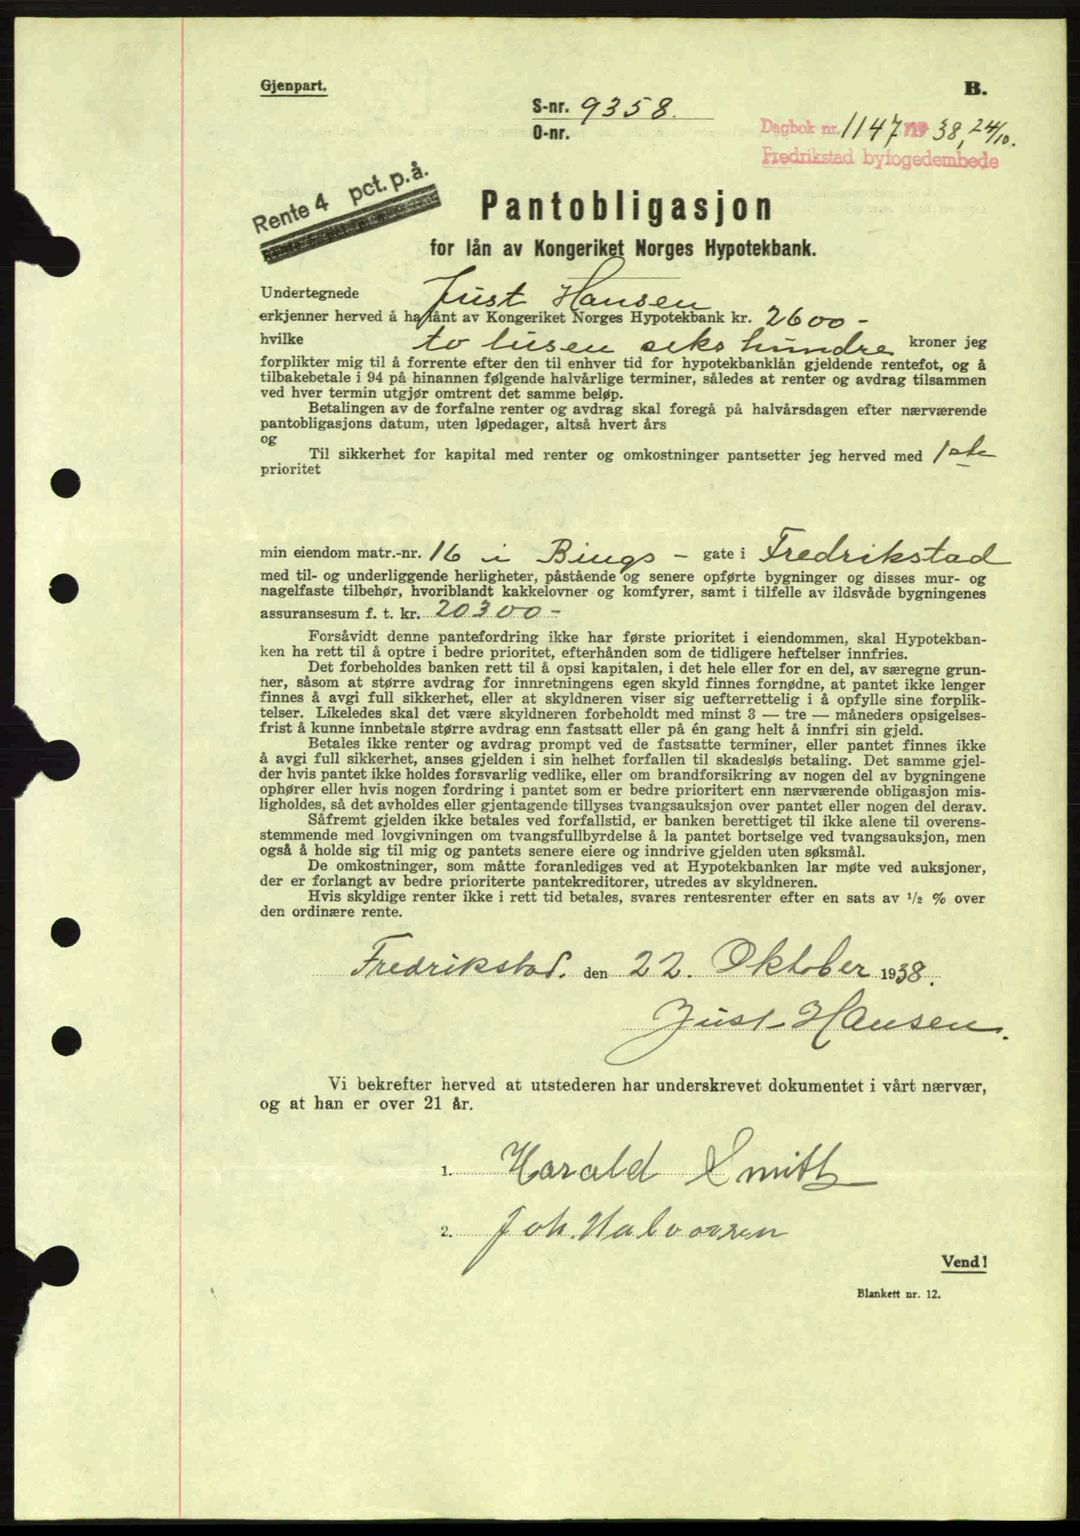 Gjenpart.
B.
S-nr. 9358.
O-nr.
Dagbok nr. 1147 1938, 24/10.
Fredrikstad byfogedembede
Rente 4 pct. p. å.
Pantobligasjon
for lån av Kongeriket Norges Hypotekbank.
Undertegnede Just Hansen
erkjenner herved å ha lånt av Kongeriket Norges Hypotekbank kr. 2600 -
hvilke to tusen seks hundre kroner jeg
forplikter mig til å forrente efter den til enhver tid for hypotekbanklån gjeldende rentefot, og å
tilbakebetale i 94 på hinannen følgende halvårlige terminer, således at renter og avdrag tilsammen
ved hver termin utgjør omtrent det samme beløp.
Betalingen av de forfalne renter og avdrag skal foregå på halvårsdagen efter nærværende
pantobligasjons datum, uten løpedager, altså hvert års
og
Til sikkerhet for kapital med renter og omkostninger pantsetter jeg herved med 1ste
prioritet
min eiendom matr.-nr. 16 i Bings - gate i Fredrikstad
med til- og underliggende herligheter, påstående og senere opførte bygninger og disses mur- og
nagelfaste tilbehør, hvoriblandt kakkelovner og komfyrer, samt i tilfelle av ildsvåde bygningenes
assuransesum f. t. kr. 20300 -
Forsåvidt denne pantefordring ikke har første prioritet i eiendommen, skal Hypotekban-
ken ha rett til å optre i bedre prioritet, efterhånden som de tidligere heftelser innfries.
Det forbeholdes banken rett til å opsi kapitalen, i det hele eller for en del, av særegne grun-
ner, såsom at større avdrag for innretningens egen skyld finnes fornødne, at pantet ikke lenger
finnes å avgi full sikkerhet, eller at skyldneren viser sig uefterrettelig i å opfylle sine forplik-
telser. Likeledes skal det være skyldneren forbeholdt med minst 3 — tre — måneders opsigelses-
frist å kunne innbetale større avdrag enn fastsatt eller på én gang helt å innfri sin gjeld.
Betales ikke renter og avdrag prompt ved de fastsatte terminer, eller pantet finnes ikke
å avgi full sikkerhet, anses gjelden i sin helhet forfallen til skadesløs betaling. Det samme gjel-
der hvis pantet ikke holdes forsvarlig vedlike, eller om brandforsikring av nogen del av bygningene
ophører eller hvis nogen fordring i pantet som er bedre prioritert enn nærværende obligasjon mis-
ligholdes, så det avholdes eller gjentagende tillyses tvangsauksjon over pantet eller nogen del derav.
Såfremt gjelden ikke betales ved forfallstid, er banken berettiget til ikke alene til overens-
stemmende med lovgivningen om tvangsfullbyrdelse å la pantet bortselge ved tvangsauksjon, men
også å holde sig til mig og pantets senere eiere og inndrive gjelden uten søksmål.
De omkostninger, som måtte foranlediges ved at Hypotekbanken lar møte ved auksjoner,
der er forlangt av bedre prioriterte pantekreditorer, utredes av skyldneren.
Hvis skyldige renter ikke i rett tid betales, svares rentesrenter efter en sats av 1/2 % over
den ordinære rente.
Fredrikstad. den 22. Oktober 1938.
Just Hansen.
Vi bekrefter herved at utstederen har underskrevet dokumentet i vårt nærvær,
og at han er over 21 år.
1. Harald Smith
2. Joh. Halvorsen
Vend!
Blankett nr. 12.